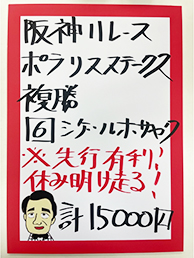 阪神11レース
ポラリスステークス
複勝
6 シゲールホサック
※先行有利!
休み明け走る!
計15000円